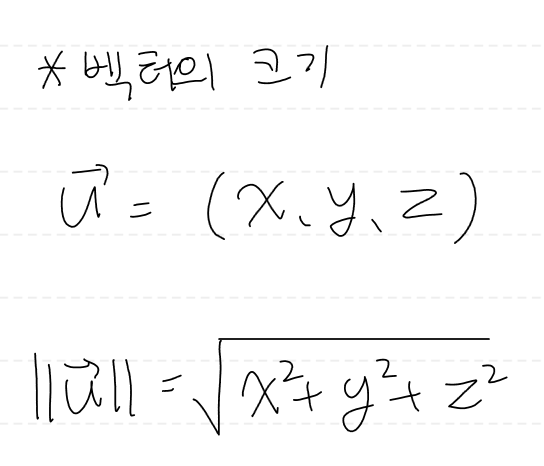 * 벡터의 크기
u⃗ = (x, y, z)
||u⃗|| = √(x² + y² + z²)